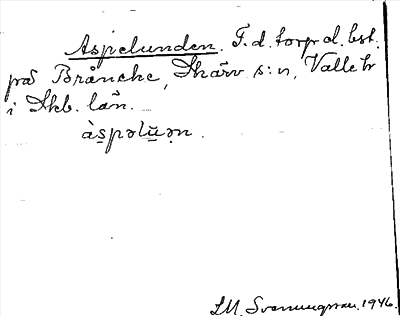 Aspelunden. F.d. torp o. d. bst.
på Brånche, Skärv s:n, Valle hr
i Skb. län.
àspəlŭə̣n.
LM. Svanungsson. 1946.